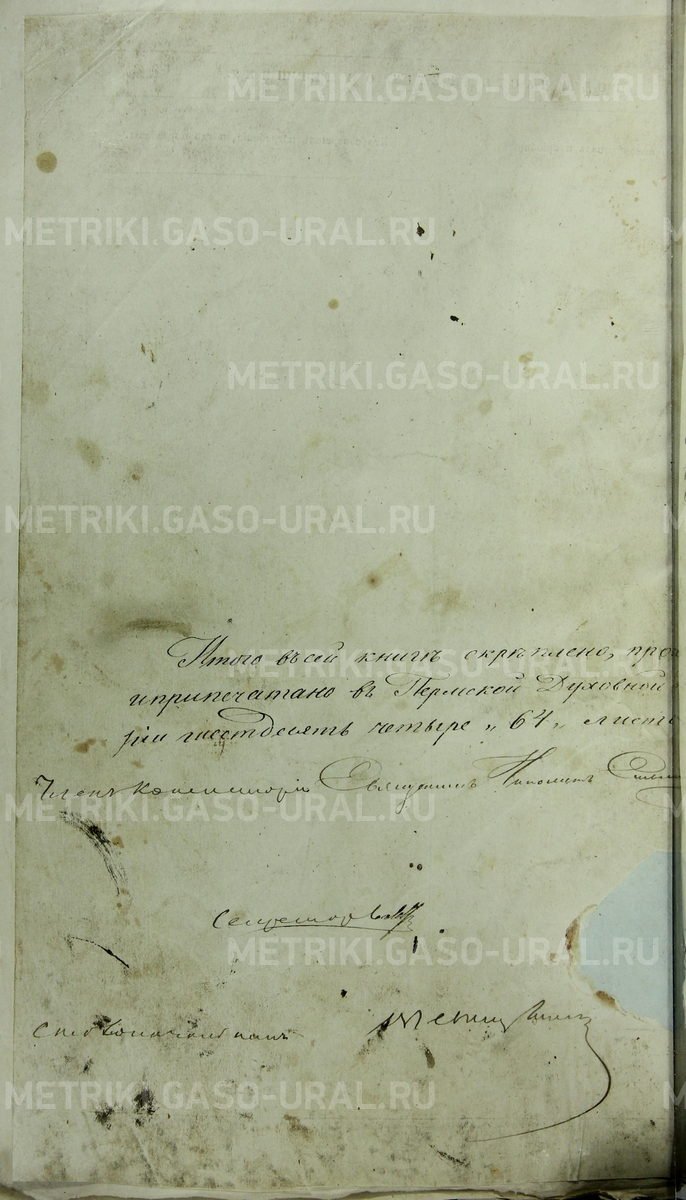 METRIKI.GASO-URAL.RU
METRIKI.GASO-URAL.RU
METRIKI.GASO-URAL.RU
METRIKI.GASO-URAL.RU
Итого въ сей книгѣ скрѣплено, про
и припечатано въ Пермской Духовной
ріи шестдесять четыре „64„ листо
METRIKI.GASO-URAL.RU
Членъ Консисторіи Священникъ Николай
Секретарь
METRIKI.GASO-URAL.RU
Столоначальникъ
METRIKI.GASO-URAL.RU